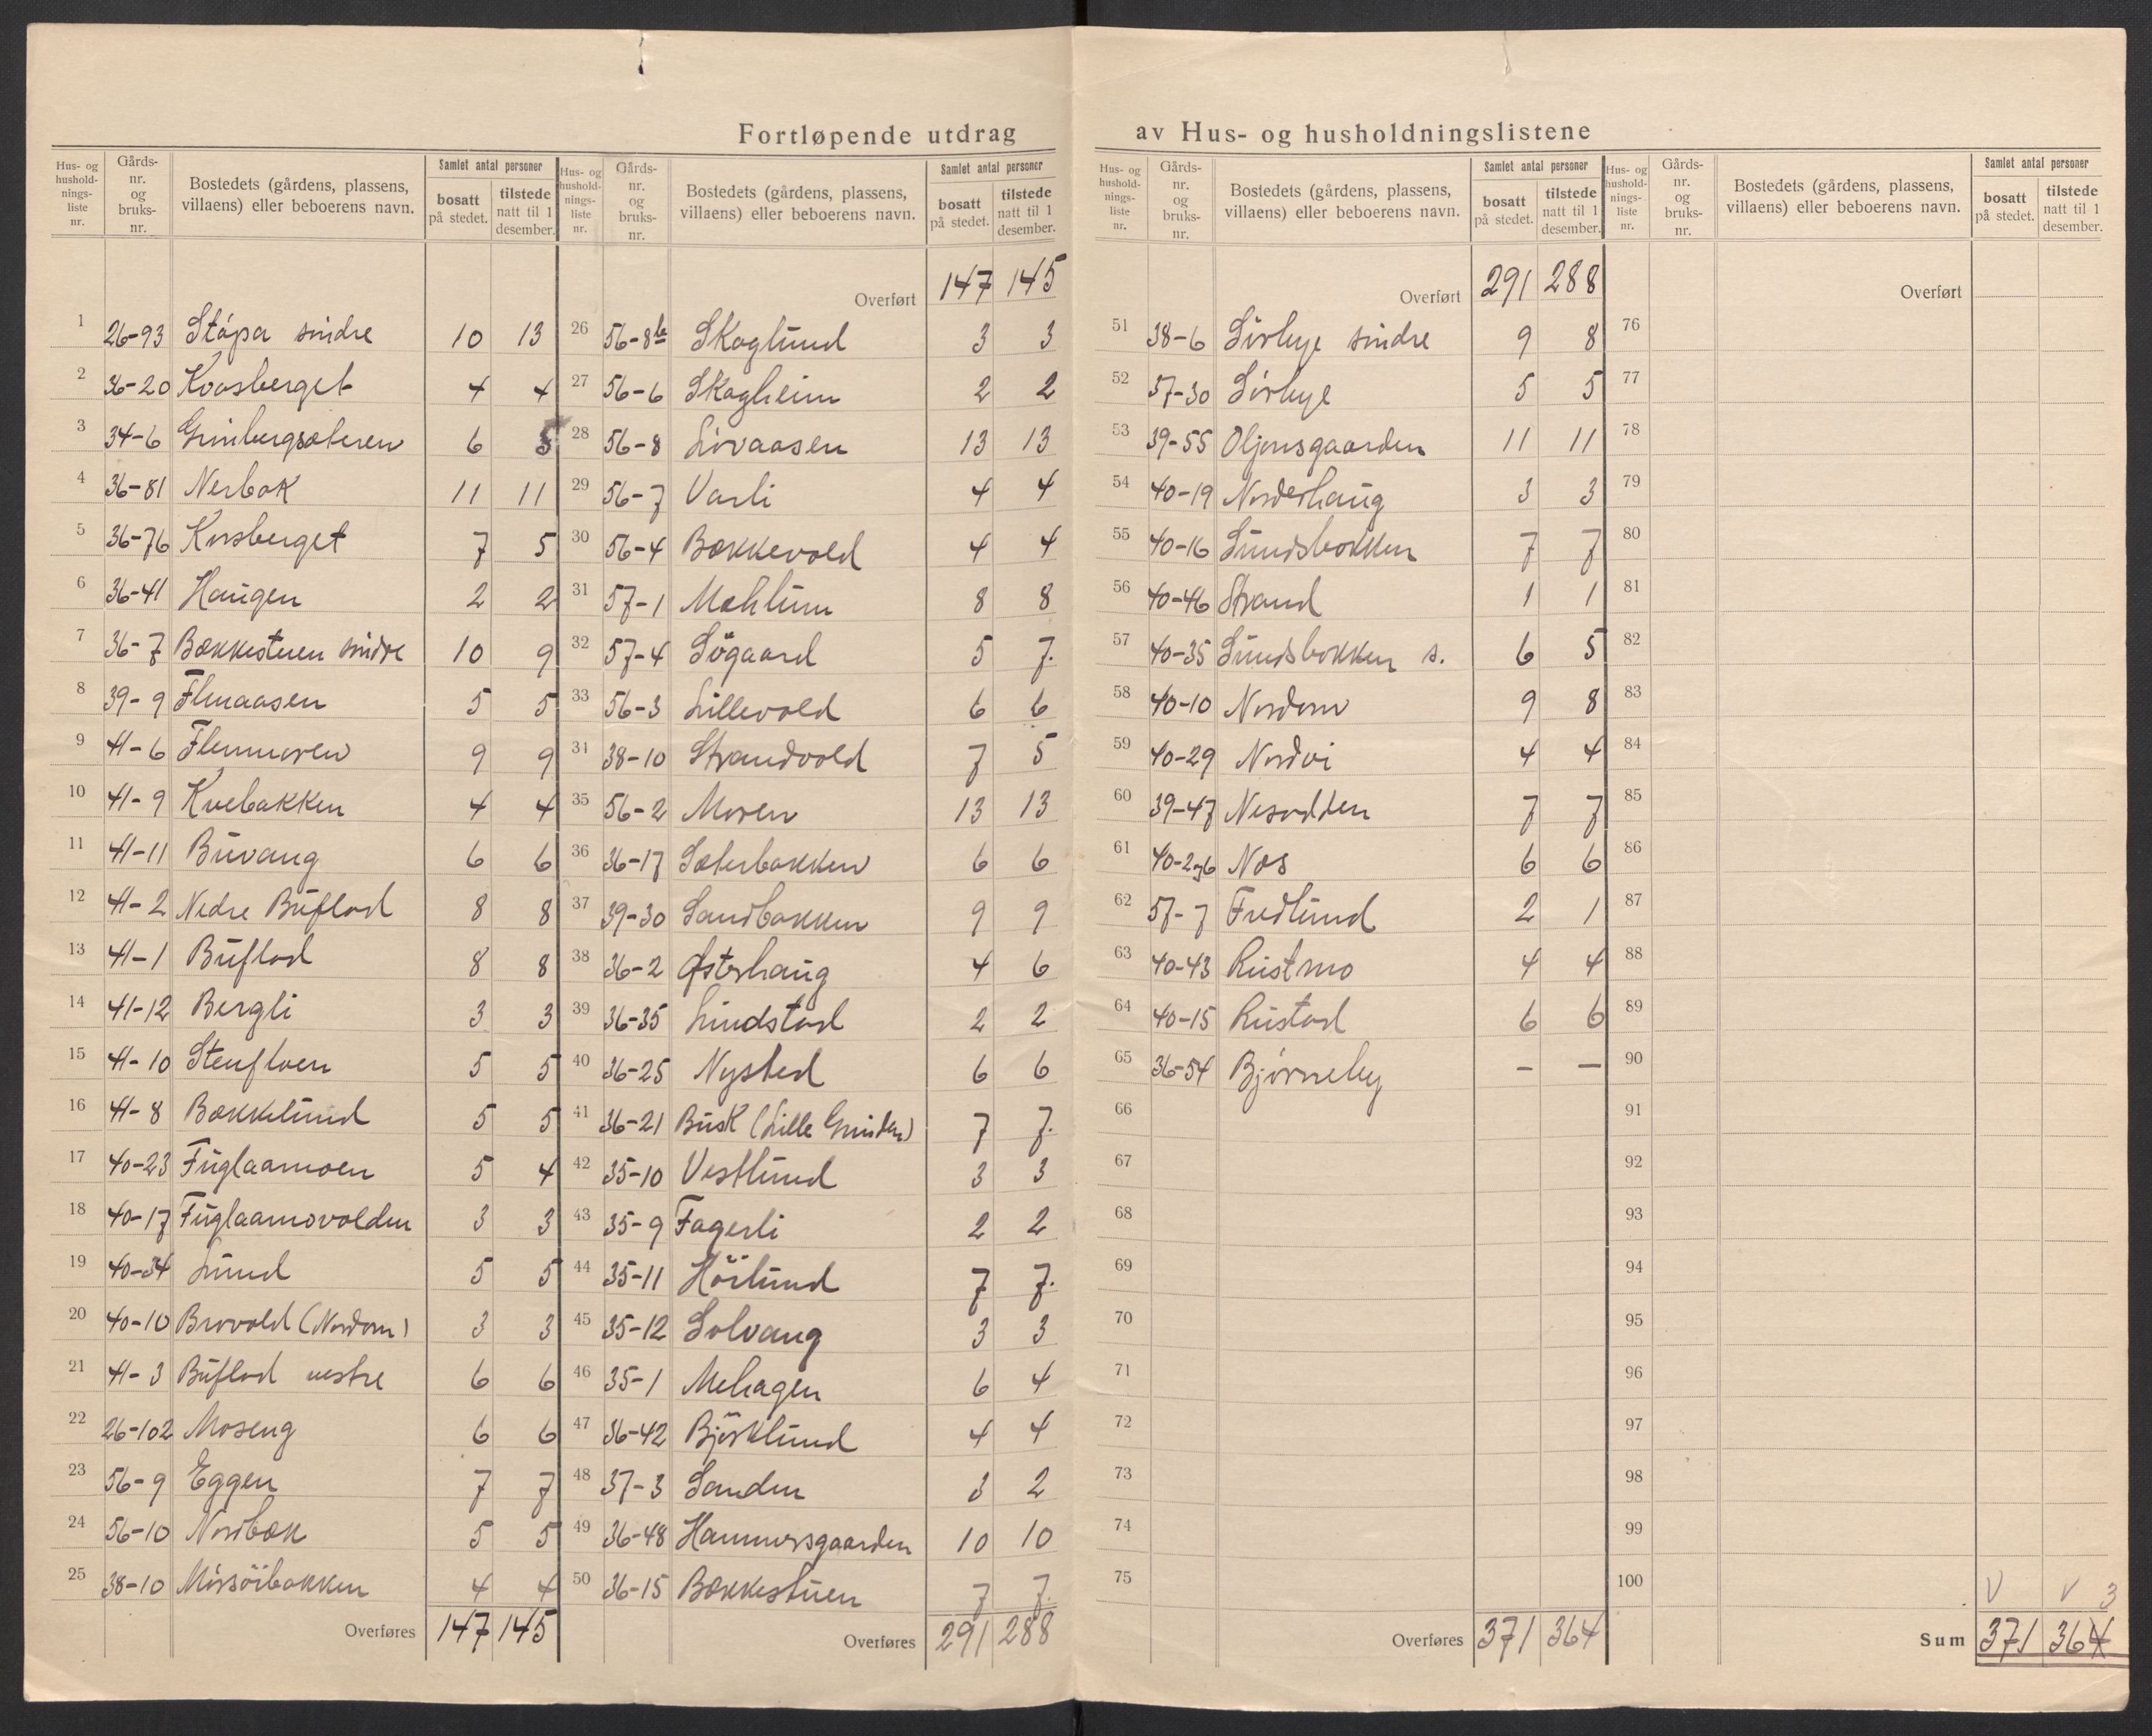 Fortløpende utdrag av Hus- og husholdningslistene
Hus- og hushold-nings-liste nr. | Gårds-nr. og bruks-nr. | Bostedets (gårdens, plassens, villaens) eller beboerens navn. | Samlet antal personer | bosatt på stedet. | tilstede natt til 1 desember.
1 26-93 Stápa sindre 10 13
2 36-20 Kvasberget 4 4
3 34-6 6 5
4 36-81 Nerbæk 11 11
5 36-76 Korsberget 7 5
6 36-41 Haugen 2 2
7 36-7 Bækkestuen sindre 10 9
8 39-9 Flenaasen 5 5
9 41-6 Flenmoren 9 9
10 41-9 Kvebakken 4 4
11 41-11 Buvang 6 6
12 41-2 Nedre Buflod 8 8
13 41-1 Buflod 8 8
14 41-12 Bergli 3 3
15 41-10 Stenfloen 5 5
16 41-8 Bækkelund 5 5
17 40-23 Fuglaamoen 5 4
18 40-17 Fuglaamovolden 3 3
19 40-34 Lund 5 5
20 40-10 Brovold (Nordom) 3 3
21 41-3 Buflod vestre 6 6
22 26-102 Moseng 6 6
23 56-9 Eggen 7 7
24 56-10 Nordbæk 5 5
25 38-10 Missöibakken 4 4
Overføres 147 145
Hus- og hushold-nings-liste nr. | Gårds-nr. og bruks-nr. | Bostedets (gårdens, plassens, villaens) eller beboerens navn. | Samlet antal personer | bosatt på stedet. | tilstede natt til 1 desember.
Overført 147 145
26 56-8b Skoglund 3 3
27 56-6 Skogheim 2 2
28 56-8 Lövaasen 13 13
29 56-7 Varli 4 4
30 56-4 Bækkevold 4 4
31 57-1 Mæhlum 8 8
32 57-4 Sögaard 5 7.
33 56-3 Lillevold 6 6
34 38-10 Strandvold 7 5
35 56-2 Moren 13 13
36 36-17 Sæterbakken 6 6
37 39-30 Sandbakken 9 9
38 36-2 Østerhaug 4 6
39 36-35 Lundstad 2 2
40 36-25 Nysted 6 6
41 36-21 Busk (Lille Grinden) 7 7.
42 35-10 Vestlund 3 3
43 35-9 Fagerli 2 2
44 35-11 Höilund 7 7.
45 35-12 Solvang 3 3
46 35-1 Mehagen 6 4
47 36-42 Björklund 4 4
48 37-3 Sanden 3 2
49 36-48 Hammersgaarden 10 10
50 36-15 Bækkestuen 7 7.
Overføres 291 288
Hus- og hushold-nings-liste nr. | Gårds-nr. og bruks-nr. | Bostedets (gårdens, plassens, villaens) eller beboerens navn. | Samlet antal personer | bosatt på stedet. | tilstede natt til 1 desember.
Overført 291 288
51 38-6 Sörbye sindre 9 8
52 57-30 Sörbye 5 5
53 39-55 Oljonsgaarden 11 11
54 40-19 Norderhaug 3 3
55 40-16 Sundsbakken 7 7
56 40-46 Strand 1 1
57 40-35 Sundsbakken s. 6 5
58 40-10 Nordom 9 8
59 40-29 Nordvi 4 4
60 39-47 Nesodden 7 7
61 40-2og6 Næs 6 6
62 57-7 Fredlund 2 1
63 40-43 Rustmo 4 4
64 40-15 Rustad 6 6
65 36-54 Björneby – –
66
67
68
69
70
71
72
73
74
75
Overføres 371 364
Hus- og hushold-nings-liste nr. | Gårds-nr. og bruks-nr. | Bostedets (gårdens, plassens, villaens) eller beboerens navn. | Samlet antal personer | bosatt på stedet. | tilstede natt til 1 desember.
Overført
76
77
78
79
80
81
82
83
84
85
86
87
88
89
90
91
92
93
94
95
96
97
98
99
100
V V 3
Sum 371 364